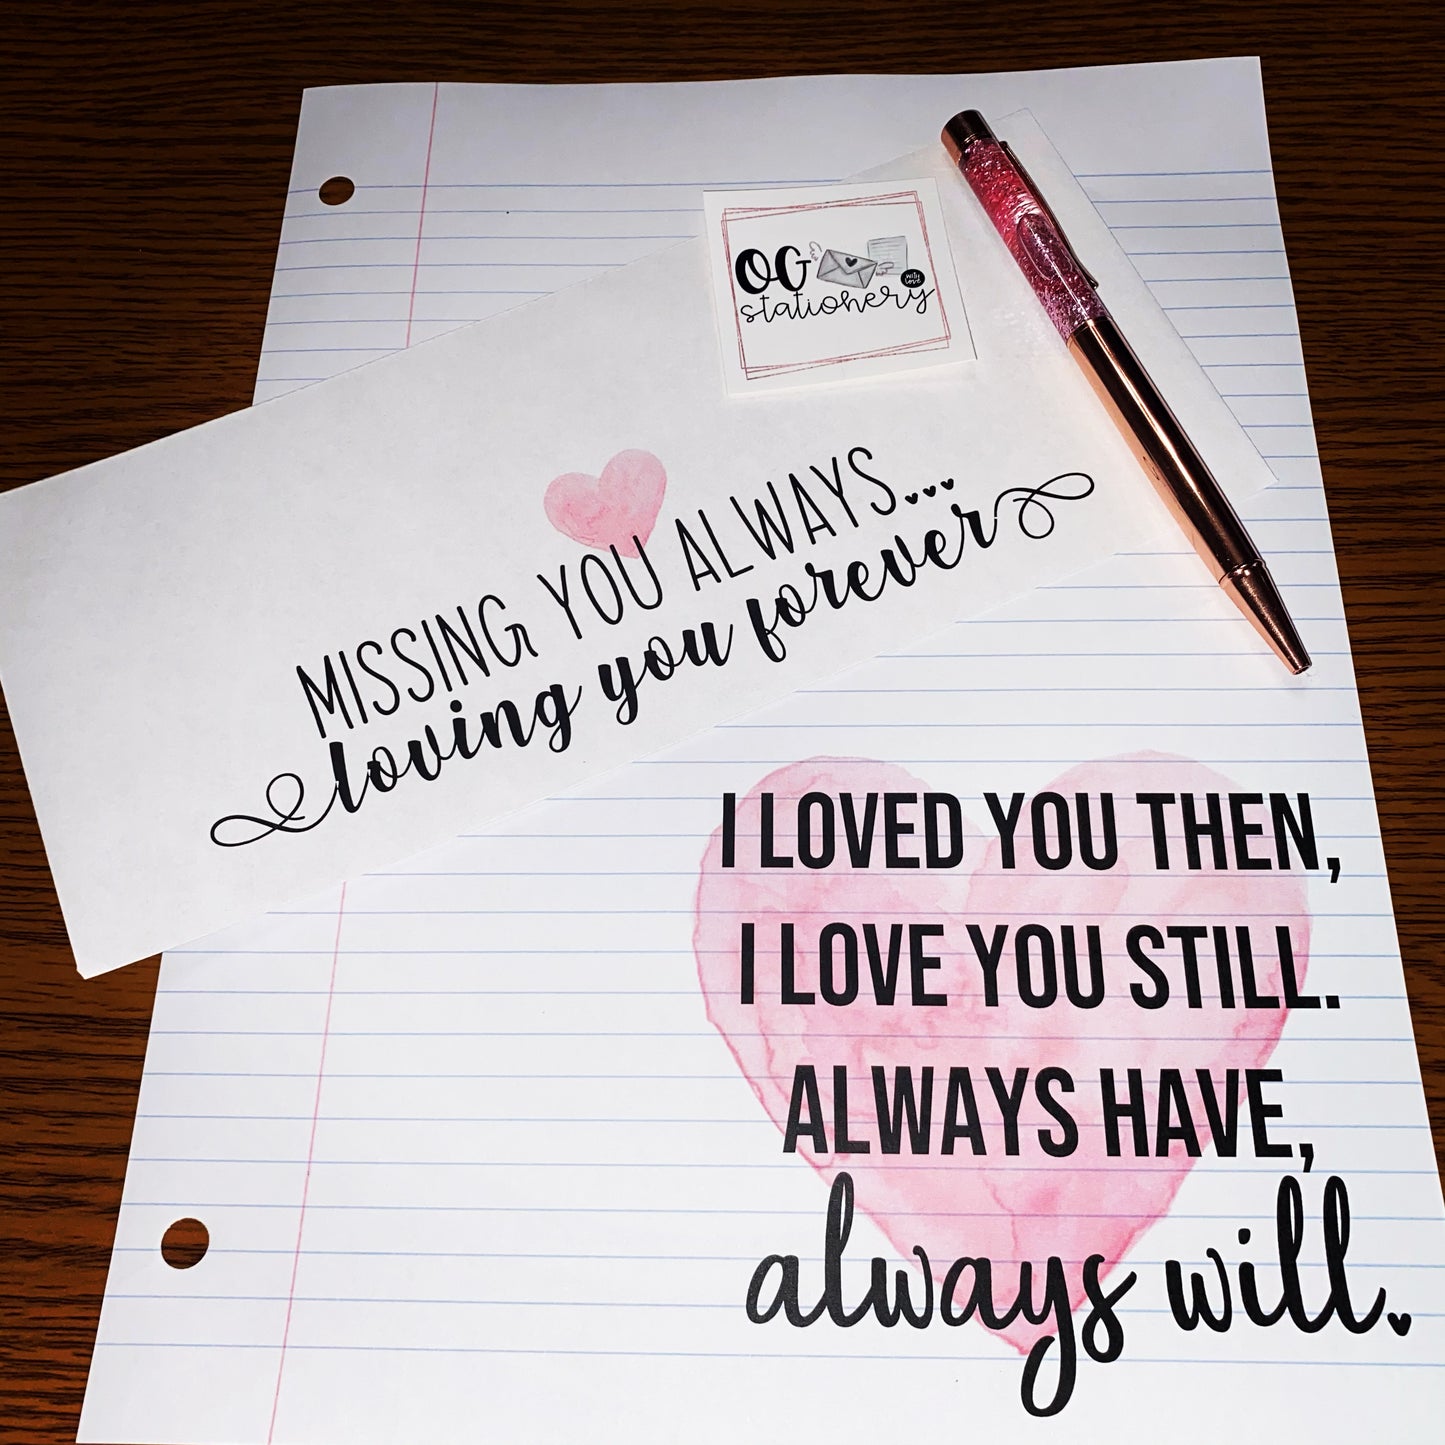 OG
with
love
stationery
MISSING YOU ALWAYS...
loving you forever
I LOVED YOU THEN,
I LOVE YOU STILL.
ALWAYS HAVE,
always will.